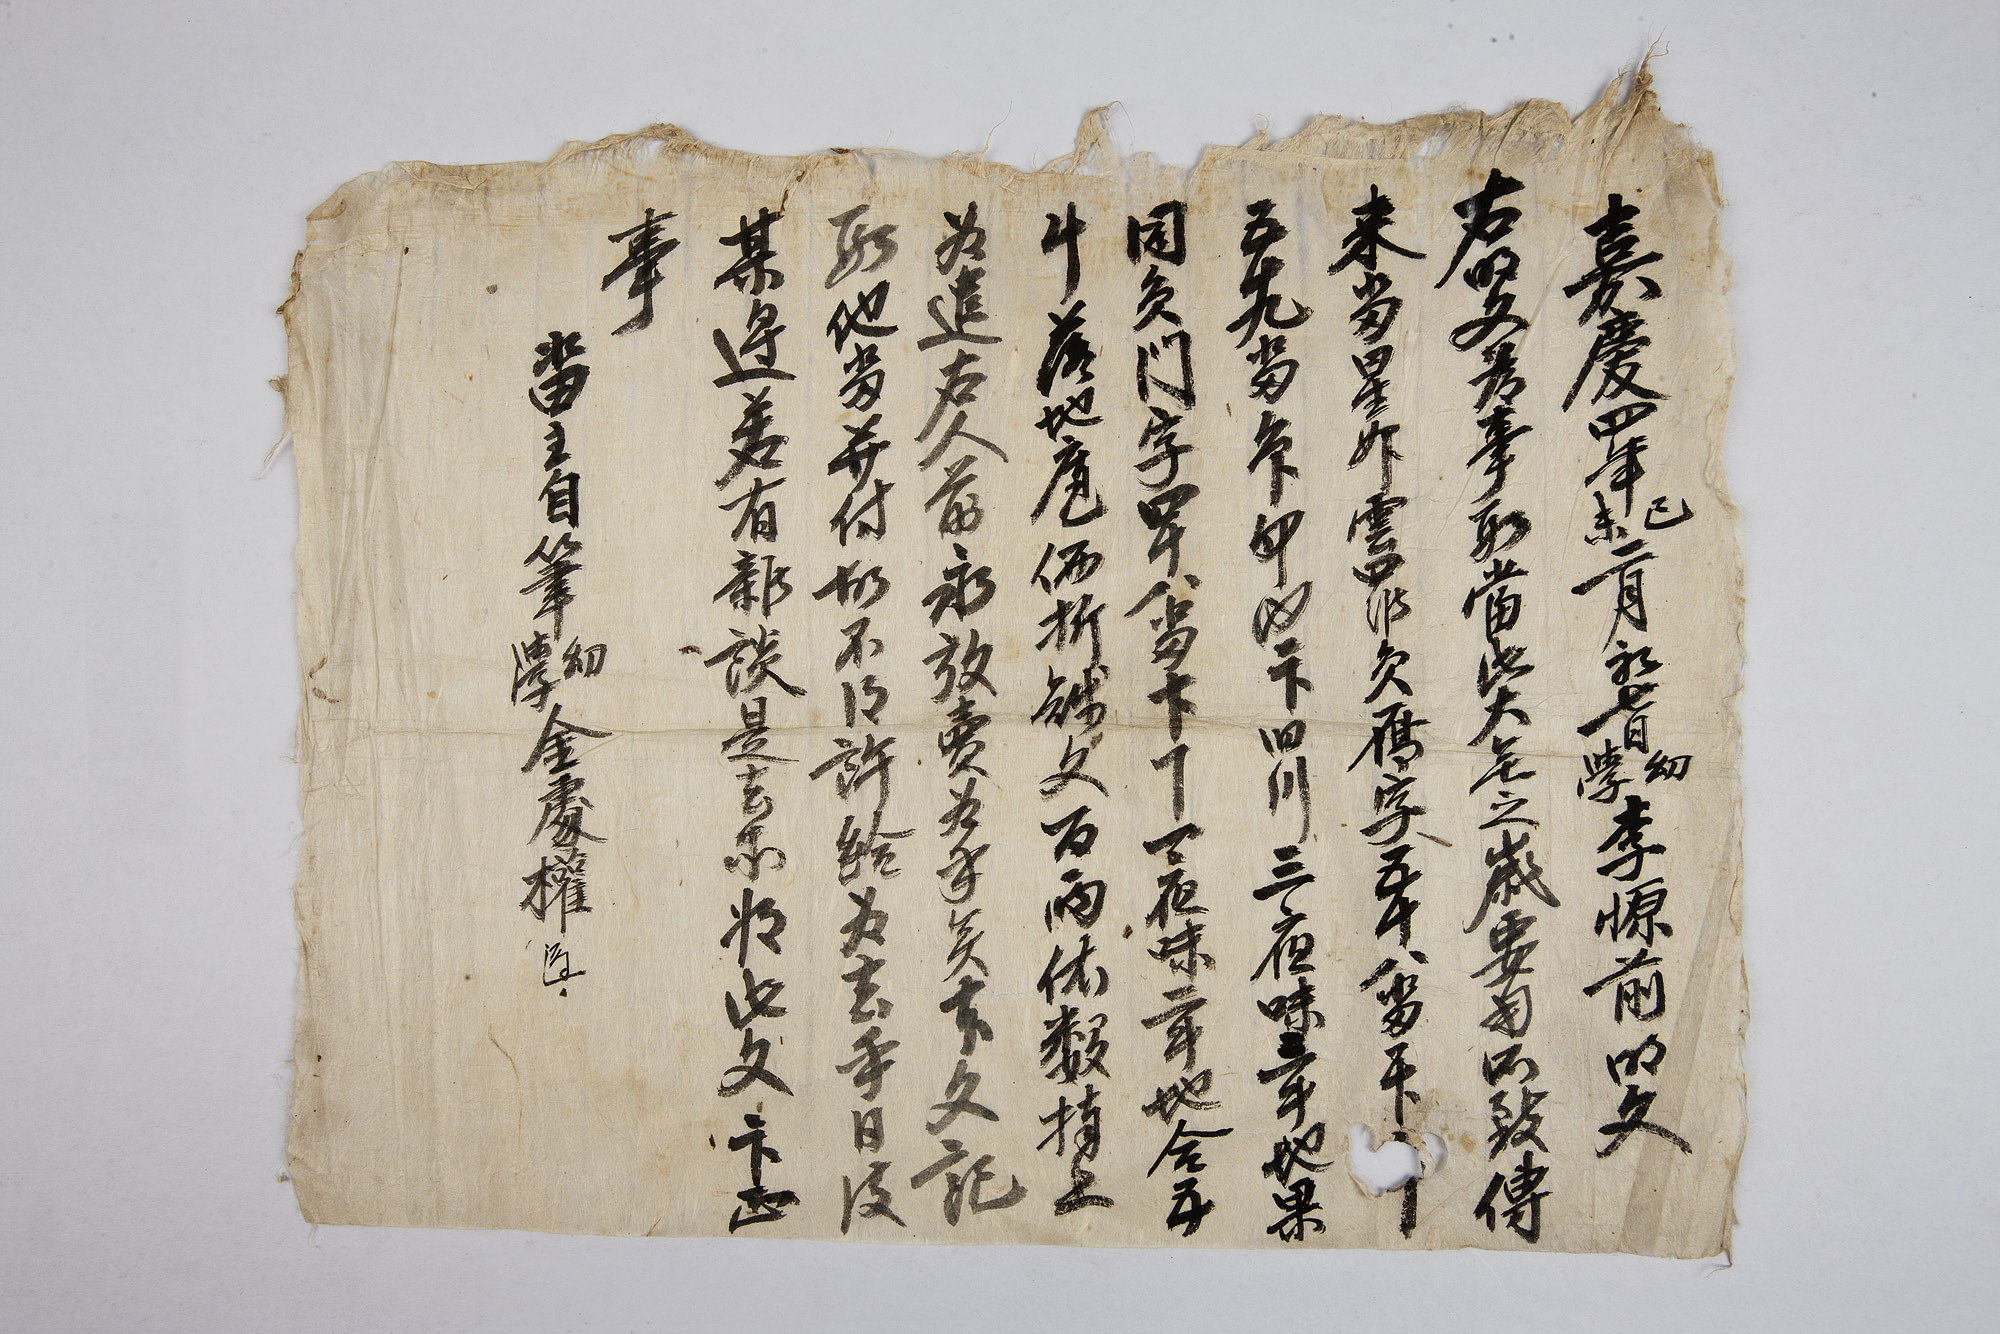 嘉慶四年己未二月初七日幼學李愿前明文
右明文爲事段當此大無之歲要用所致傳
來畓星州雲羅員鴈字五十八畓
五十九畓 三夜味三斗地果
同員門字四十八畓卜 夜味二斗地合五
斗落地庫価折錢文百兩依數捧上
爲遣右人前永放賣爲乎矣本文記
段他畓幷付故不得許給爲去乎日後
某 若有雜談是去等將此文卞正
事
畓主自筆幼學金處權